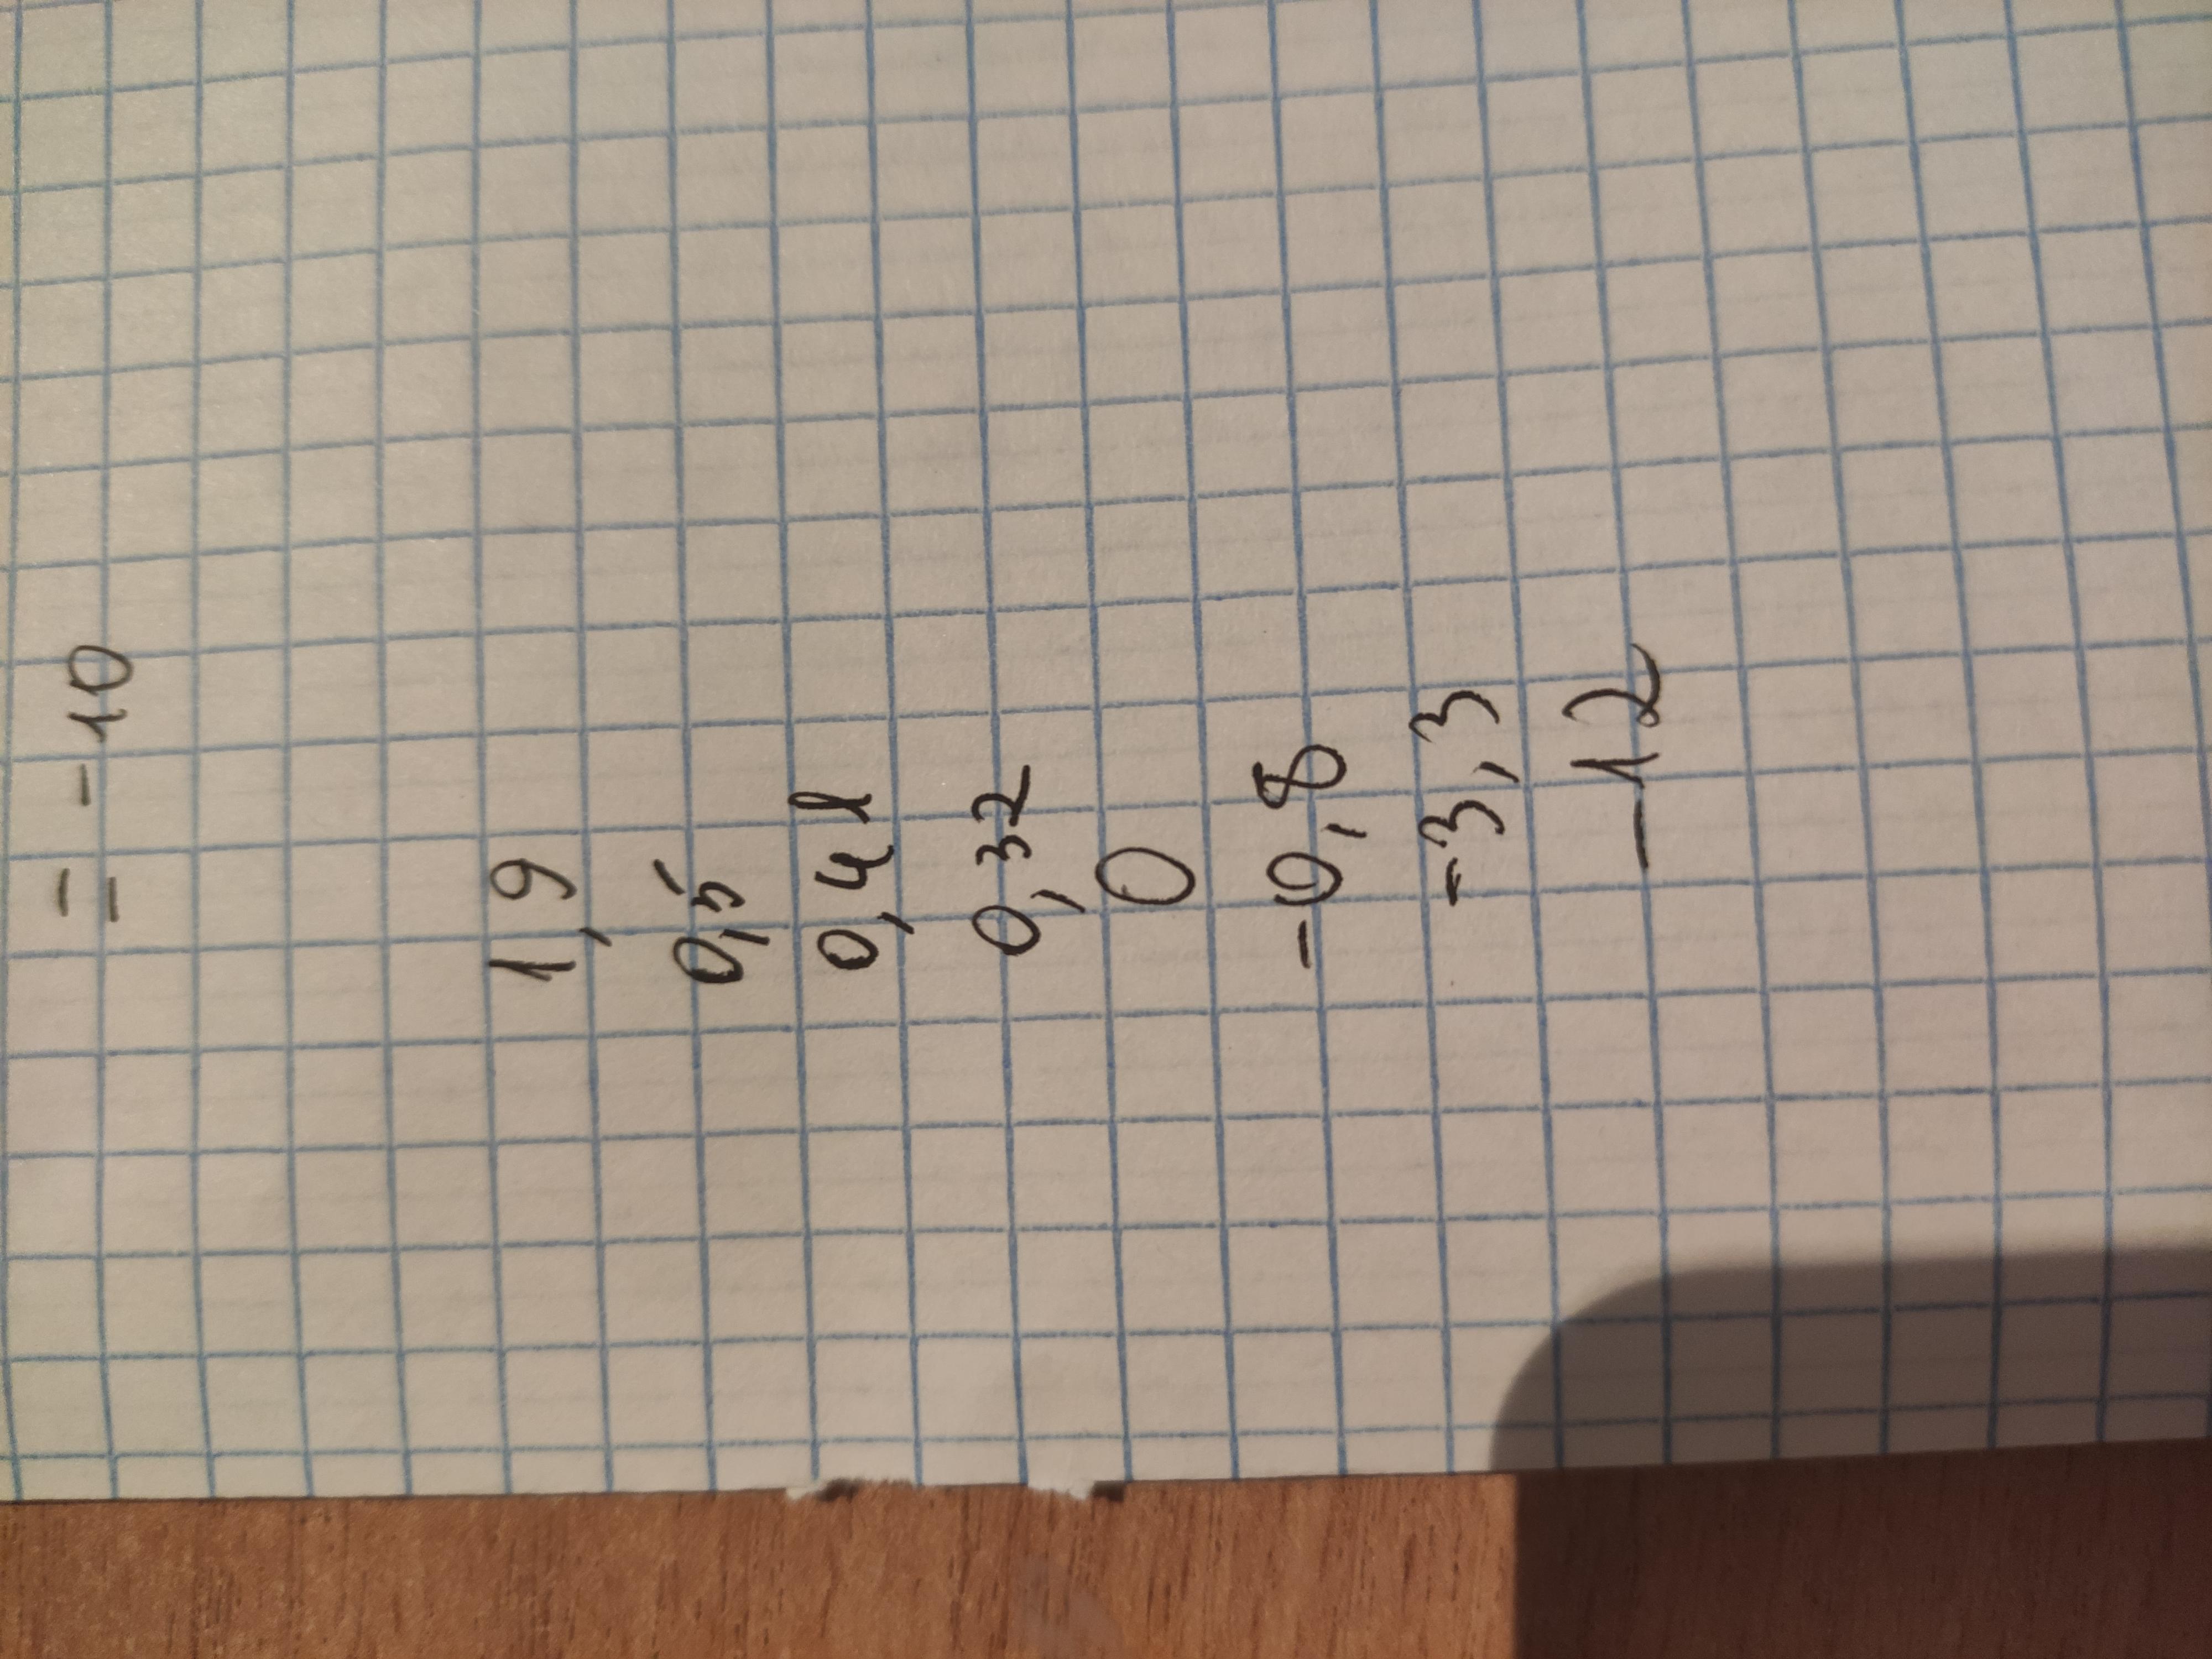 = -10
1,9
0,5
0,41
0,32
0
-0,8
-3,3
-12